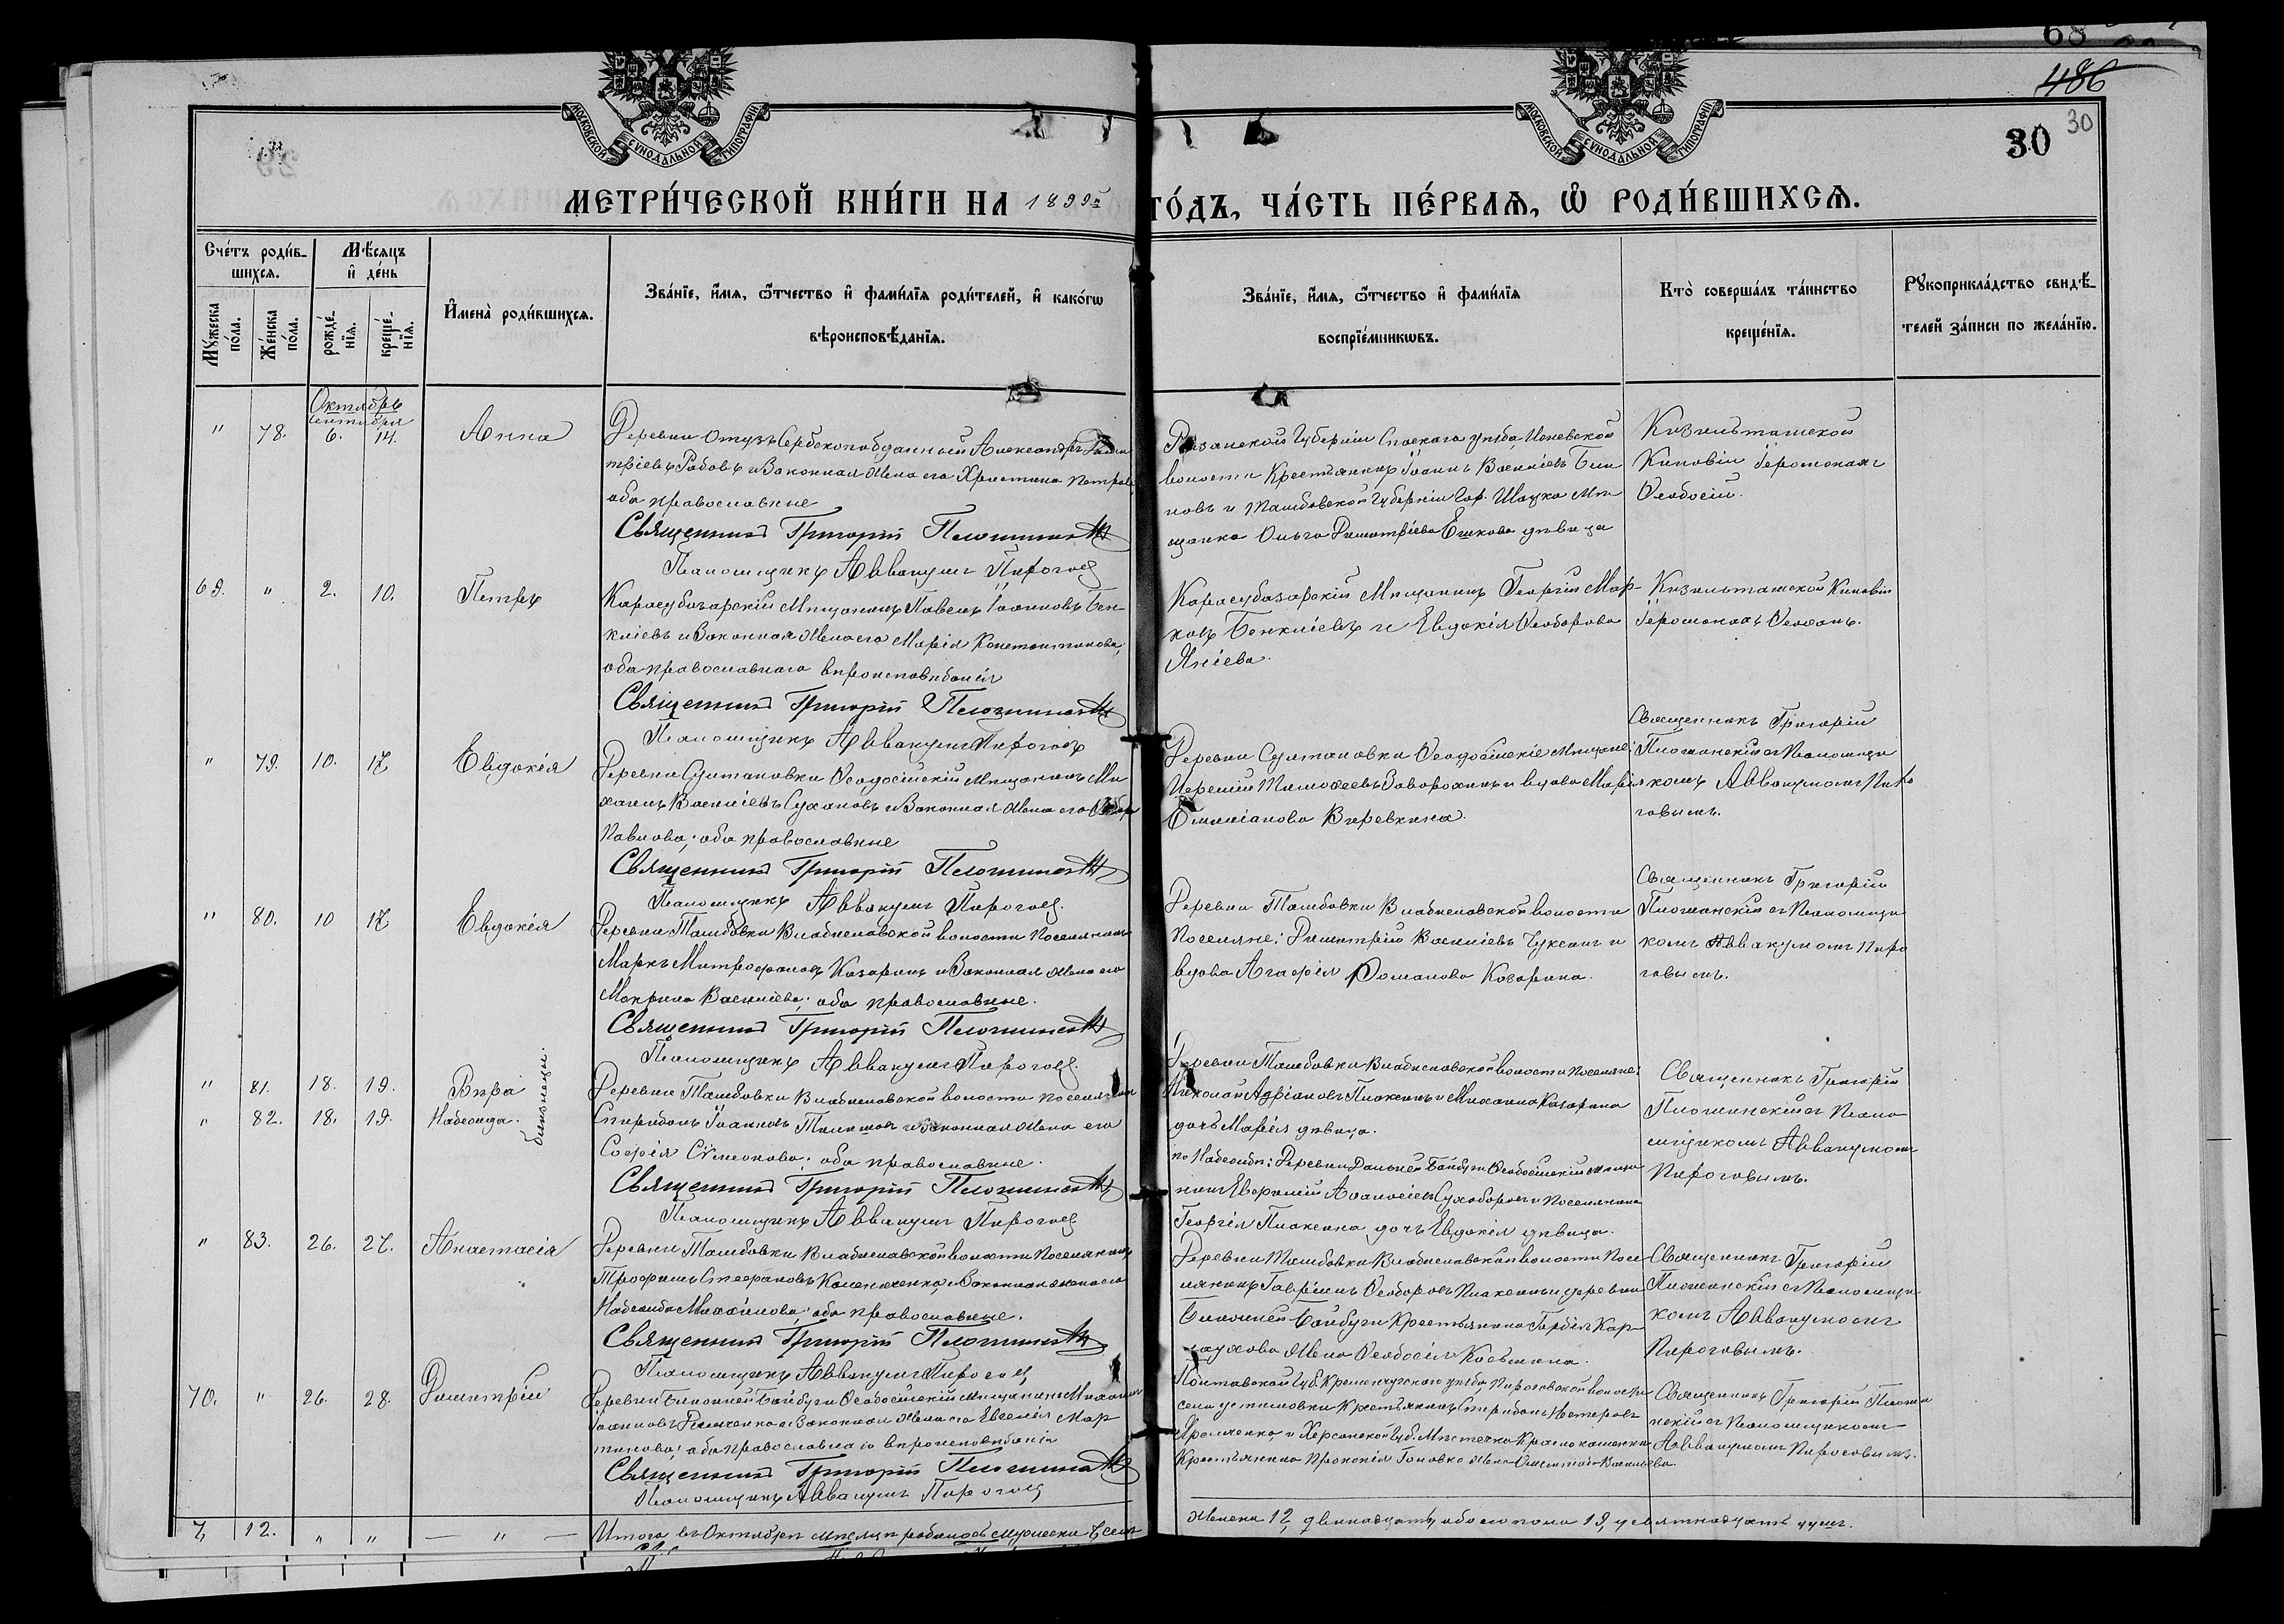 68
486
30
30
МОСКОВСКОЙ СУНОДАЛЬНОЙ ТИПОГРАФІИ
МОСКОВСКОЙ СУНОДАЛЬНОЙ ТИПОГРАФІИ
МЕТРИ́ЧЕСКОЙ КНИ́ГИ НА 1899й ГО́ДЪ, ЧА́СТЬ ПЕ́РВАѦ, Ѡ҆ РОДИ́ВШИХСѦ.
Сче́тъ роди́в-
шихсѧ.
Мꙋ́жеска по́ла.
Же́нска по́ла.
Мѣ́сѧцъ
и҆ де́нь
рожде́-
нїѧ.
креще́-
нїѧ.
И҆мена̀ роди́вшихсѧ.
Зва́нїе, и҆́мѧ, ѻ҆́тчество и҆ фами́лїѧ роди́телей, и҆ како́гѡ
вѣроисповѣ́данїѧ.
Зва́нїе, и҆́мѧ, ѻ҆́тчество и҆ фами́лїѧ
воспрїе́мникѡвъ.
Кто̀ соверша́лъ та́инство
креще́нїѧ.
Рꙋкоприкла́дство свидѣ́-
телей за́писи по жела́нїю.
Октябрь
Сентября
" 78. 6. 14. Анна
Деревни Отузъ Сербскоподданный Александръ
тріевъ Рабовъ и Законная Жена его Христина Петрова
оба православные
Священникъ Григорій
Псаломщикъ Аввакумъ Пирогов
Рязанской Губерніи Спаскаго уѣзда Ижевской
волости Крестьянинъ Іоаннъ Василіевъ
новъ и Тамбовской Губерніи Гор. Шацка Мѣ
щанка Ольга Димитріева Ежкова дѣвица
Кизильташской
Киновіи Іеромонахъ
Ѳеодосій.
69. " 2. 10. Петръ
Карасубазарскій Мѣщанинъ Павелъ Іоанновъ Бен
кліевъ и Законная Жена его Марія Константинова,
оба православнаго вѣроисповѣданія
Священникъ Григорій
Псаломщикъ Аввакумъ Пирогов
Карасубазарскій Мѣщанинъ Георгій Мар-
ковъ Бенкліевъ и Евдокія Ѳеодорова
Яніева.
Кизильташской Киновіи
Іеромонахъ Ѳеофанъ.
" 79. 10. 17 Евдокія
Деревни Султановки Ѳеодосійскій Мѣщанинъ Ми
хаилъ Василіевъ Сухановъ и Законная Жена его
Павлова; оба православные
Священникъ Григорій
Псаломщикъ Аввакумъ Пирогов
Деревни Султановки Ѳеодосійскіе Мѣщане:
Иеремій Тимоѳеевъ Заворохинъ и вдова Марія
Емиліанова Веревкина.
Священникъ Григорій
Плотинскій съ Псаломщи
комъ Аввакумомъ Пиро
говымъ.
" 80. 10 17 Евдокія
Деревни Тамбовки Владиславской волости Поселянинъ
Маркъ Митрофановъ Казаринъ и Законная Жена его
Макрина Василіева; оба православные.
Священникъ Григорій
Псаломщикъ Аввакумъ Пирогов
Деревни Тамбовки Владиславской волости
Поселяне: Димитрій Василіевъ Чуксинъ и
вдова Агафія Романова Казарина.
Священникъ Григорій
Плотинскій съ Псаломщи
комъ Аввакумомъ Пиро
говымъ.
" 81. 18. 19. Вѣра
" 82. 18. 19. Надежда.
близнецы.
Деревни Тамбовки Владиславской волости Поселянинъ
Спиридонъ Іоанновъ и Законная Жена его
Софія Сѵмеонова; оба православные.
Священникъ Григорій
Псаломщикъ Аввакумъ Пирогов
Деревни Тамбовки Владиславской волости Поселяне:
Николай Адріановъ Плаксинъ и Михаила Казарина
дочь Марія дѣвица.
по Надеждѣ: Деревни Дальней Байбуги Ѳеодосійскій Мѣща
нинъ Евфимій Аѳанасіевъ Сухоборовъ и Поселянина
Георгія Плаксина дочь Евдокія дѣвица.
Священникъ Григорій
Плотинскій съ Псало
мщикомъ Аввакумомъ
Пироговымъ.
" 83. 26. 27. Анастасія
Деревни Тамбовки Владиславской волости Поселянинъ
Трофимъ Стефановъ и Законная жена его
Надежда Михайлова; оба православные.
Священникъ Григорій
Псаломщикъ Аввакумъ Пирогов
Деревни Тамбовки Владиславской волости Посе
лянинъ Гавріилъ Ѳеодоровъ Плаксинъ и деревни
Ближней Байбуги Крестьянина Гордія Кар
наухова Жена Ѳеодосія Косьмина.
Священникъ Григорій
Плотинскій съ Псаломщи
комъ Аввакумомъ
Пироговымъ.
70. " 26. 28. Димитрій
Деревни Ближней Байбуги Ѳеодосійскій Мѣщанинъ Михаилъ
Іоанновъ и Законная Жена его Евгенія Мар
тинова; оба православнаго вѣроисповѣданія
Священникъ Григорій
Псаломщикъ Аввакумъ Пирогов
Полтавской Губ. Кременчугскаго уѣзда, Пироговской волости
села Устимовки Крестьянинъ Спиридонъ Нестеровъ
и Херсонской Губ. Мѣстечка
Крестьянина Прокопія Головко жена Василіева.
Священникъ Григорій Плотин
скій съ Псаломщикомъ
Аввакумомъ Пироговымъ.
7, 12. " " — " —
Итого въ Октябрѣ мѣсяцѣ родилось мужеска 7, семь
женска 12, двѣнадцать, обоего пола 19, девятнадцать душъ.